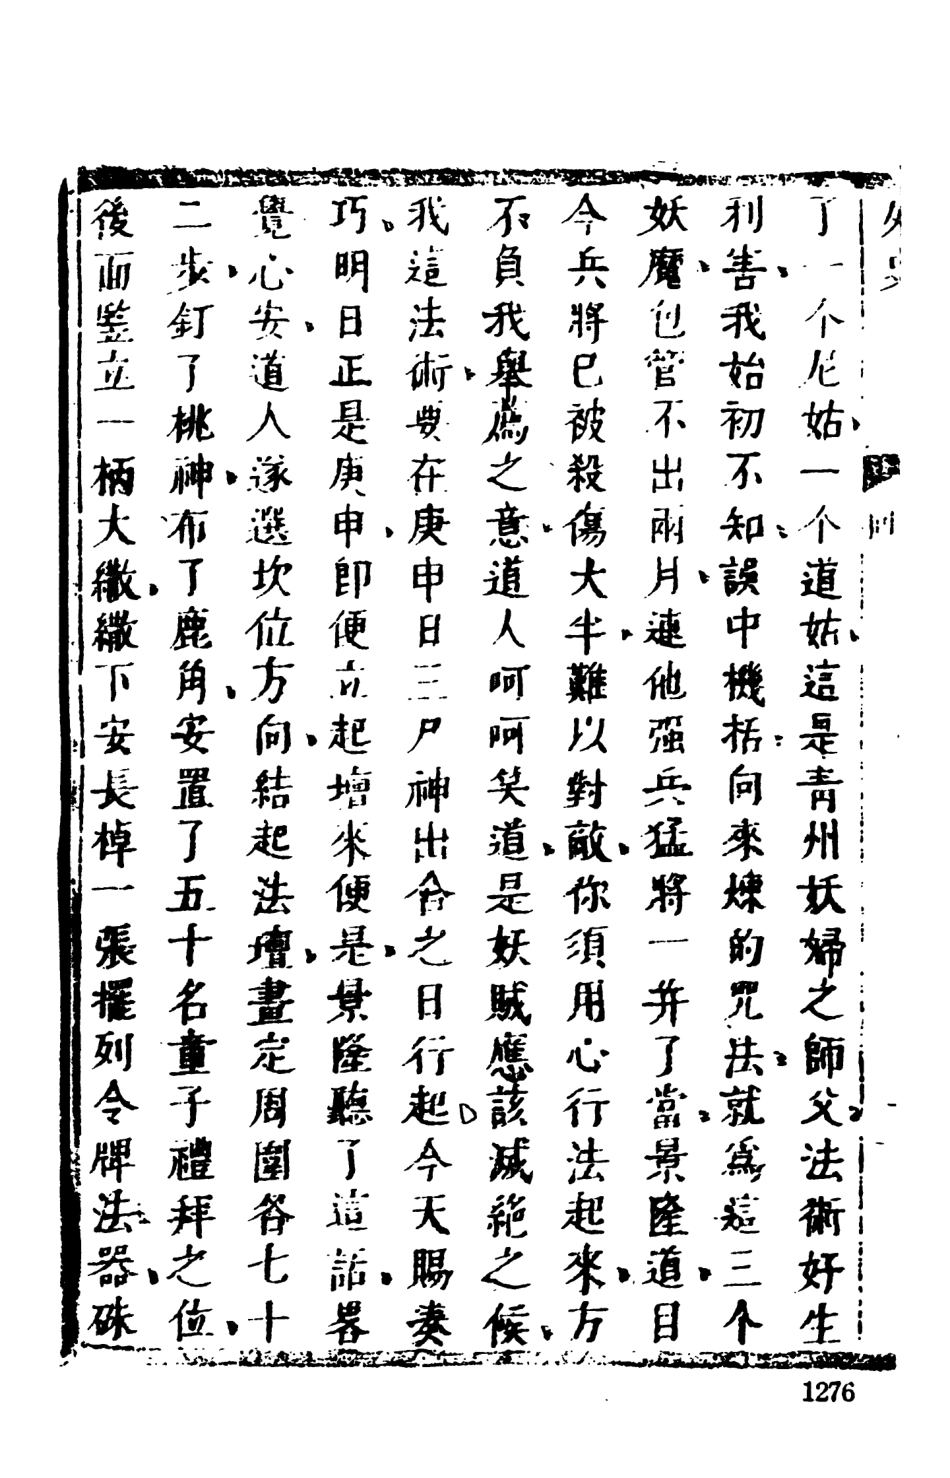 外史
回
了一个尼姑、一个道姑、這是青州妖婦之師父、法術好生
利害、我始初不知、誤中機括、向來煉的咒法、就爲這三个
妖魔、包管不出兩月、連他強兵猛將一并了當、景隆道、目
今兵將已被殺傷大半、難以對敵、你須用心行法起來、方
不負我舉薦之意、道人呵呵笑道、是妖賊應該滅絶之候、
我這法術、要在庚申日三尸神出舍之日行起、今天賜湊
巧、明日正是庚申、即便立起壇來便是、景隆聽了這話、畧
覺心安、道人遂選坎位方向、結起法壇、畫定周圍各七十
二步、釘了桃神、布了鹿角、安置了五十名童子禮拜之位、
後面竪立一柄大繖、繖下安長棹一張、擺列令牌法器、硃
1276